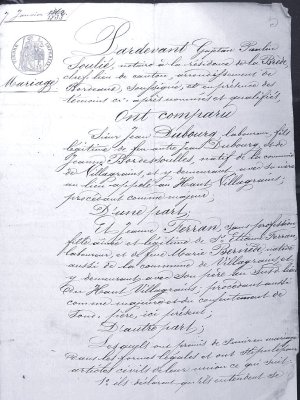 7 Janvier 1869
Mariage
Pardevant Gaston Paulin
Soulié, notaire à la résidence de la Brède,
chef lieu de canton, arrondissement de
Bordeaux, soussigné, et en présence des
témoins ci-après nommés et qualifiés
Ont comparu
Sieur Jean Dubourg, laboureur, fils
légitime de feu autre Jean Dubourg, et de
Jeanne Bordessoulles, natif de la commune
de Villagrains, et y demeurant, avec sa mère
au lieu appelé au Haut Villagrains;
procédant comme majeur,
D'une part;
Et Jeanne Ferran, sans profession
fille aînée et légitime de Sr Ferran,
laboureur, et de feue Marie native
aussi de la commune de Villagrains, et
y demeurant avec son père au susdit lieu
du Haut Villagrains; procédant aussi
comme majeure et du consentement de
son père, ici présent;
D'autre part;
Lesquels ont promis de s'unir en mariage
dans les formes légales et ont stipulé les
articles civils de leur union ce qui suit:
1° ils déclarent qu'ils entendent se